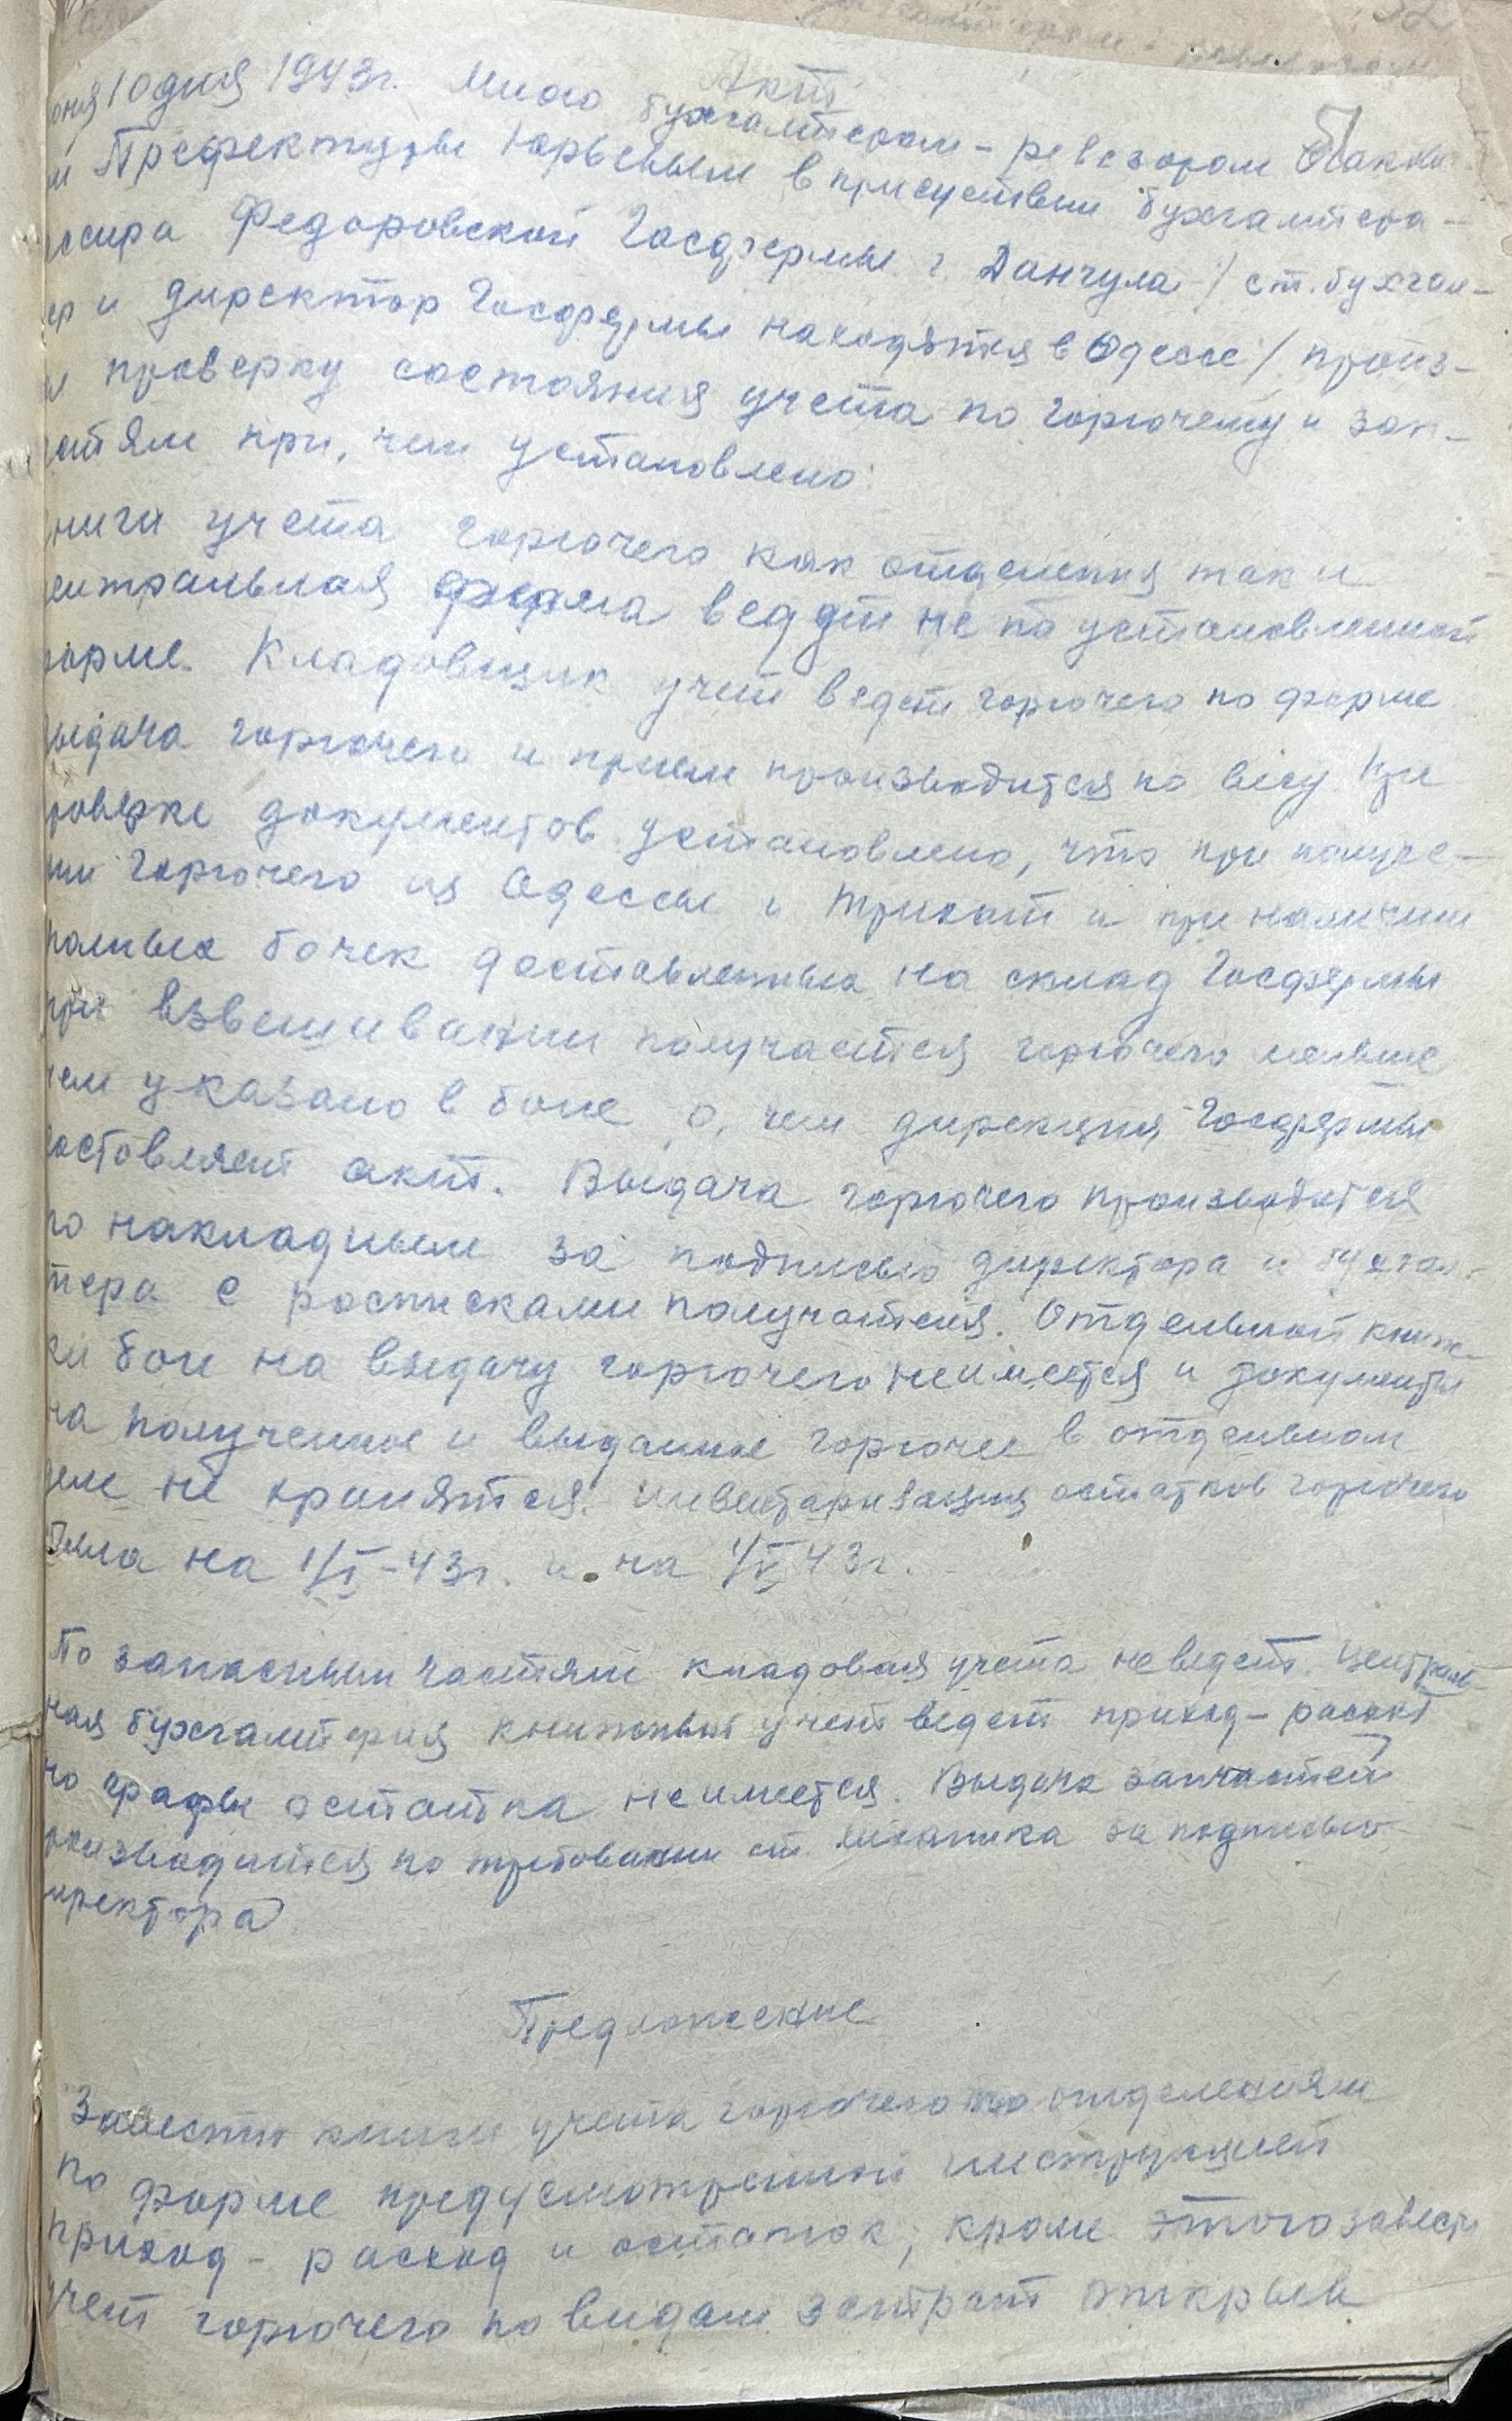 Акт
юня 10 дня 1943г. Мною бухгалтером-ревизором
й Префектуры Юрьевым в присуствии бухгалтера-
ссира Федоровской Госфермы г. Данчула /ст. бухгал-
ер и директор Госфермы находятся в Одессе/ произ-
л проверку состояния учета по горючему и зап-
астям при, чем установлено:
ниги учета горючего как отделения так и
ентральная ферма ведут не по установленной
орме. Кладовщик учет ведет горючего по форме
ыдача горючего и прием производится по весу При
роверке документов установлено, что при получе-
нии горючего из Одессы и Трихат и при наличии
полных бочек доставленных на склад Госфермы
при взвешивании получается горючего меньше
чем указано в боне, о, чем дирекция Госфермы
составляет акт. Выдача горючего производится
по накладным за подписью директора и бухгал-
тера с росписками получателя. Отдельной книж-
ки бон на выдачу горючего неимеется и документы
на полученное и выданное горючее в отдельном
деле не хранятся. Инвентаризация остатков горючего
была на 1/I-43г. и на 1/V 43г.
По запасным частям кладовая учета не ведет. Централь-
ная бухгалтерия книжный учет ведет приход-расход
но графы остатка неимеется. Выдача запчастей
роизводится по требованию ст. механика за подписью
иректора
Предложение
Завести книги учета горючего по отделениям
по форме предусмотренной инструкцией
приход - расход и остаток; кроме этого завести
учет горючего по видам затрат открыв